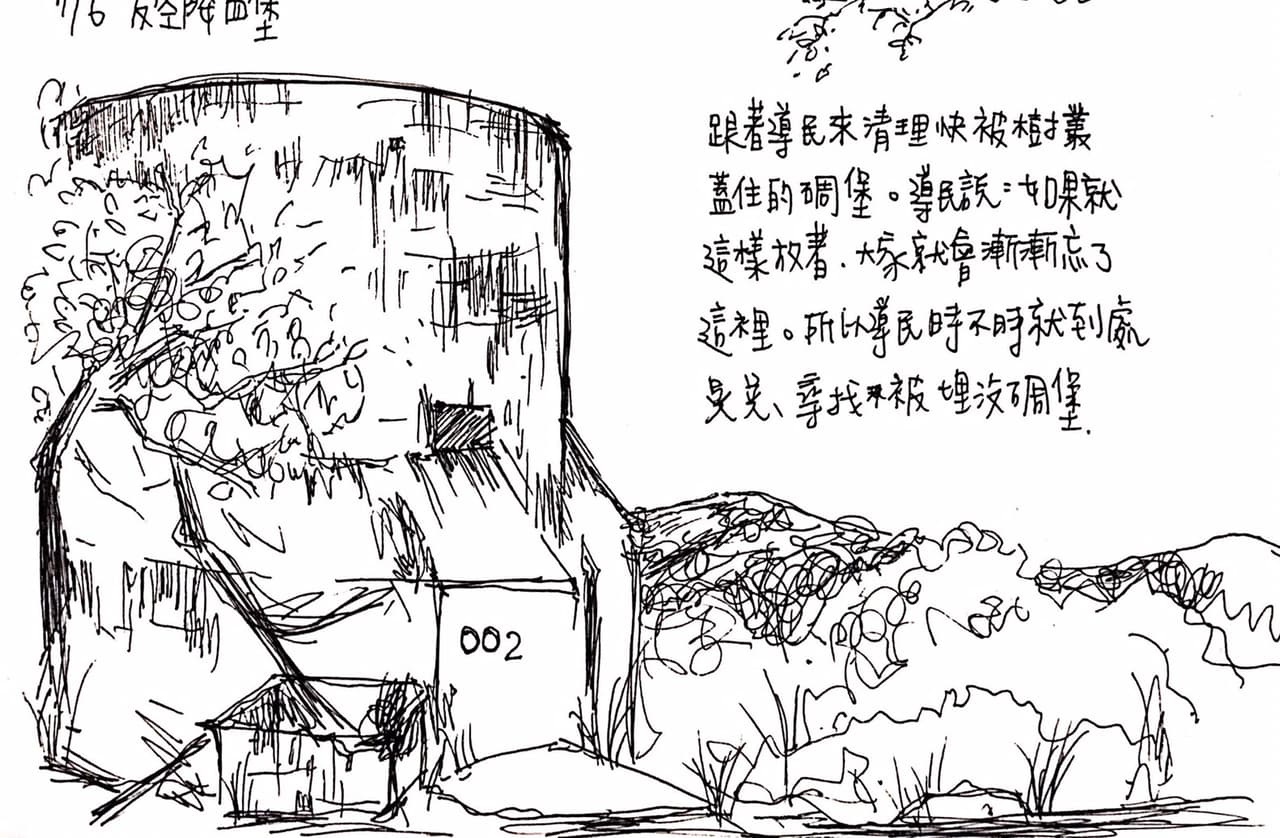 7/6 反空降堡
跟著導民來清理快被樹叢
蓋住的碉堡。導民說：如果就
這樣放著、大家就會漸漸忘了
這裡。所以導民時不時就到處
晃晃、尋找被埋沒碉堡.
002